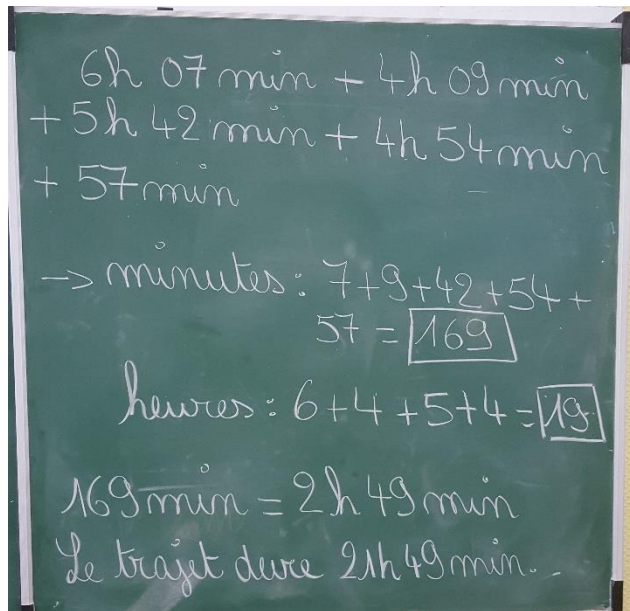 6h 07 min + 4h 09 min
+ 5h 42 min + 4h 54 min
+ 57 min
→ minutes : 7+9+42+54+
57 = 169
heures : 6+4+5+4=19
169 min = 2h 49 min
Le trajet dure 21h 49 min.